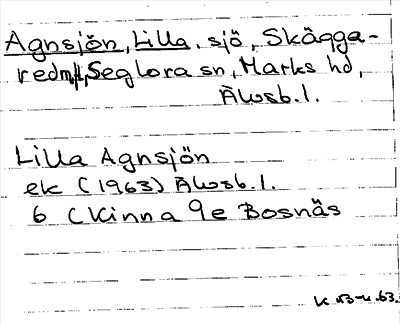 Agnsjön, Lilla, sjö, Skägga-
red, Seglora sn, Marks hd,
Älvsb. l.
Lilla Agnsjön
ek (1963) Älvsb. l.
6 (Kinna 9e Bosnäs